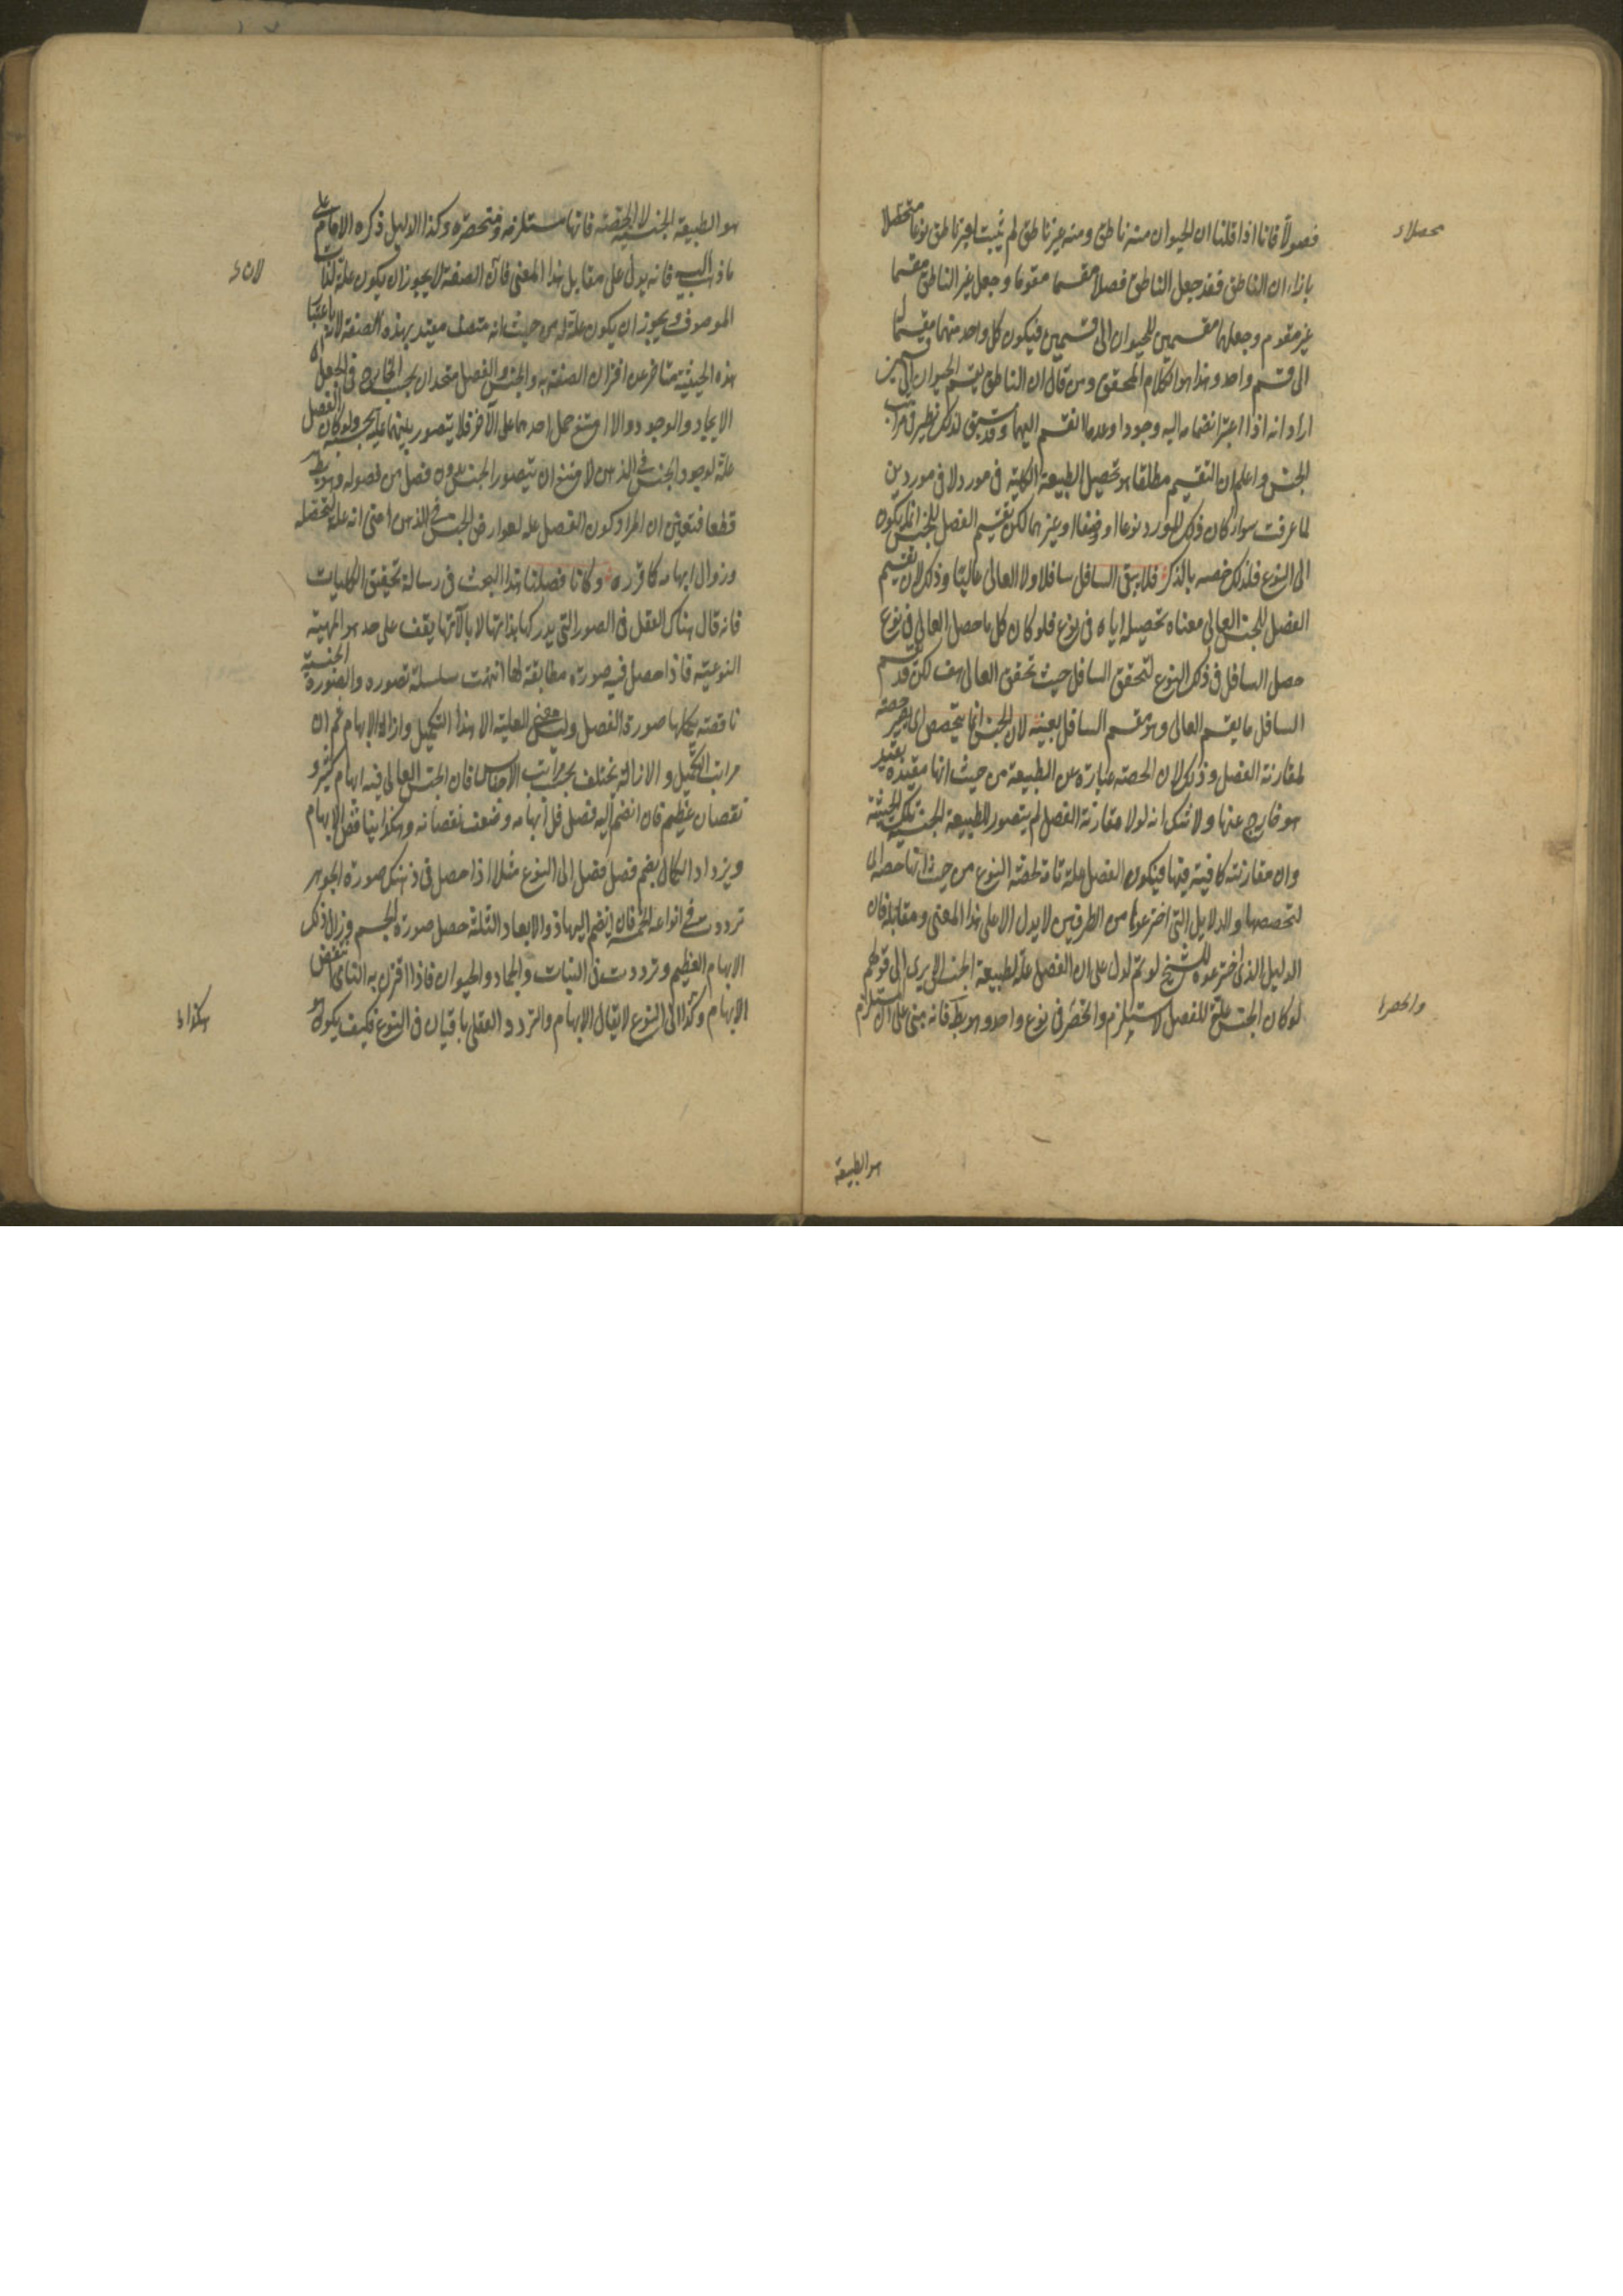 فصولا فانا اذا قلنا ان الحيوان منه ناطق ومنه غير ناطق لم يثبت لغير ناطق نوعا متحصلا
محصلا
بازاء ان الناطق فقد جعل الناطق فصلا مقسما مقوما وجعل غير الناطق مقسما
غير مقوم وجعلهما مقسمين للحيوان الى قسمين فيكون كل واحد منهما مقسما
الى قسم واحد وهذا هو الكلام المحقق ومن قال ان الناطق يقسم الحيوان الى قسمين
اراد انه اذا اعتبر انضمامه اليه وجودا وعدما انقسم اليهما وقد سبق لذلك نظير في مراتب
الجنس واعلم ان التقسيم مطلقا هو تحصيل الطبيعة الكلية في مورد لا في موردين
لما عرفت سواء كان ذلك المورد نوعا او صنفا او غيرهما لكن تقسيم الفصل للجنس انما يكون
الى النوع فلذلك خصه بالذكر فلا يبقى السافل سافلا ولا العالى عاليا وذلك لان تقسيم
الفصل للجنس العالى معناه تحصيله اياه في نوع فلو كان كل ما حصل العالى في نوع
حصل السافل في ذلك النوع لتحقق السافل حيث تحقق العالى هف لكن قد يقسم
السافل ما يقسم العالى وهو مقسم السافل بعينه لان الجنس انما يتخصص اى يصير حصة
لمقارنة الفصل وذلك لان الحصة عبارة عن الطبيعة من حيث انها مقيدة بقيد
هو خارج عنها ولا شك انه لولا مقارنة الفصل لم يتصور للطبيعة الجنسية تلك الحيثية
وان مقارنته كافية فيها فيكون الفصل علة تامة لحصة النوع من حيث انها حصة اى
لتخصصها والدلايل التى اخترعوها من الطرفين لا يدل الا على هذا المعنى ومقابله فان
الدليل الذى اخترعوه للشيخ لو تم لدل على ان الفصل علة لطبيعة الجنس الا يرى الى قولهم
لو كان الجنس علة للفصل لاستلزم وانحصر في نوع واحد وهو بط فانه مبنى على ان المستلزم
وانحصر
هو الطبيعة
هو الطبيعة الجنسية لا الحصة فانها مستلزمة ومنحصرة وكذا الدليل ذكره الامام على
ما ذهب اليه فانه يدل على مقابل هذا المعنى فان الصفة لا يجوز ان يكون علة لذات
لان
الموصوف ويجوز ان يكون علة له من حيث انه متصف مقيد بهذه الصفة لانه باعتبار
هذه الحيثية متاخر عن اقتران الصفة به والجنس والفصل متحدان بحسب الخارج في الجعل
الايجاد والوجود والا امتنع حمل احدهما على الآخر فلا يتصور بينهما علية بحسبه ولو كان الفصل
علة لوجود الجنس في الذهن لامتنع ان يتصور الجنس بدون فصل من فصوله وهو بط
قطعا فتعين ان المراد كون الفصل علة لعوارض الجنس في الذهن اعنى انه علة لتحصله
وزوال ابهامه كما قرره وكانا فصلنا هذا البحث في رسالة تحقيق الكليات
فانه قال هناك العقل في الصور التى يدركها بذاتها لا بالآتها يقف على حد هو المهية
النوعية فاذا حصل فيه صورة مطابقة لها انتهت سلسلة تصوره والصورة الجنسية
ناقصة يكملها صورة الفصل وليس معنى للعلية الا هذا التكميل وازالة الابهام ثم ان
مراتب التكميل والازالة يختلف بحسب مراتب الاجناس فان الجنس العالى فيه ابهام كثير و
نقصان عظيم فان انضم اليه فصل قل ابهامه وضعف نقصانه وهكذا يتناقص الابهام
ويزداد الكمال بضم فصل فصل الى النوع مثلا اذا حصل في ذهنك صورة الجوهر
ترددت في انواعه الخمسة فان انضم اليها ذو الابعاد الثلثة حصل صورة الجسم وزال ذلك
الابهام العظيم وترددت في النبات والجماد والحيوان فاذا اقترن به النامى انتقض
الابهام وهكذا الى النوع لا يقال الابهام والتردد العقلى باقيان في النوع فكيف يكون
هكذا